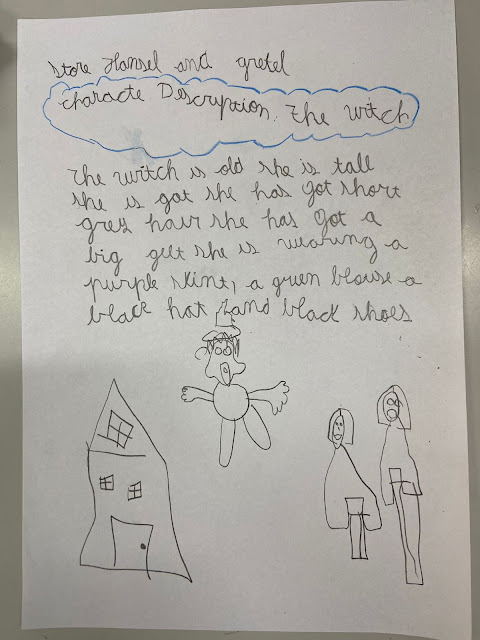 store Hansel and gretel
characte Descryption. The witch
The witch is old she is tall
she is got she has got short
grey hair she has got a
big gelt she is wearing a
purple skint, a green blouse a
black hat and black shoes